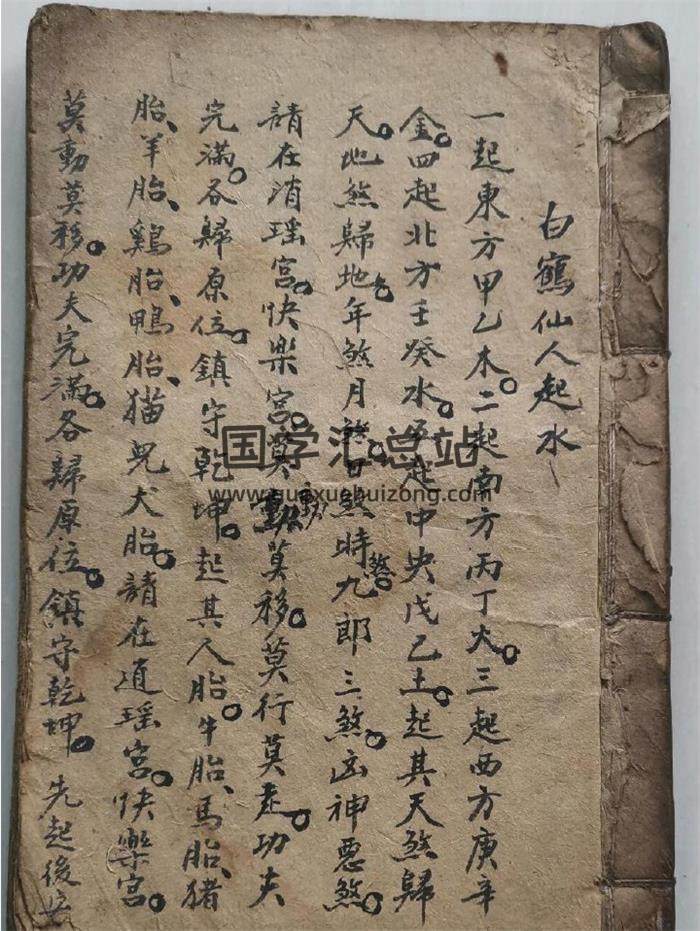 白鶴仙人起水
一起東方甲乙木。二起南方丙丁火。三起西方庚辛
金。四起北方壬癸水。五起中央戊己土。起其天煞歸
天。地煞歸地。年煞月煞日煞時煞。九郎三煞。凶神惡煞。
請在逍瑤宮。快樂宮。莫動莫移。莫行莫走。功夫
完滿。各歸原位。鎮守乾坤。起其人胎。牛胎、馬胎、猪
胎、羊胎、鷄胎、鴨胎、猫兒犬胎。請在逍瑤宮。快樂宮。
莫動莫移。功夫完滿。各歸原位。鎮守乾坤。先起後安
国学汇总站
www.guoxuehuizong.com